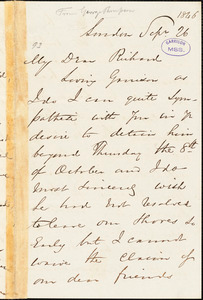 From George Thompson
1846
London Sepr 26
GARRISON
MSS.
93
My Dear Richard
Loving Garrison as
I do I can quite sym-
pathete with you in yr
desire to detain him
beyond Thursday the 8th
of October and I do
most sincerely wish
he had not resolved
to leave our shores so
early but I cannot
waive the claims of
our dear friends